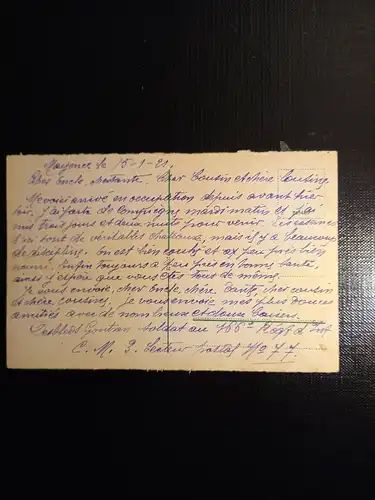 Mayence le 15-1-21.
Cher Oncle, chère tante. Cher Cousin et chère Cousine
Me voici arrivé en occupation depuis avant hier
soir. J'ai parti de Compiègne mardi matin et j'ai
mis trois jours et deux nuits pour venir. Les casernes
d'ici sont de véritables châteaux, mais il y a beaucoup
de discipline. On est bien couché et à peu près bien
nourri. Enfin toujours à peu près en bonne santé,
avec j'espère que vous êtes tous de même.
Je vous envoie, cher Oncle, chère tante, cher cousin
et chère cousine, je vous envoie mes plus douces
amitiés avec de nombreux et doux baisers.
Gontran soldat au 166e Régt d'Inf
C. M. 3. Secteur Postal No 77.